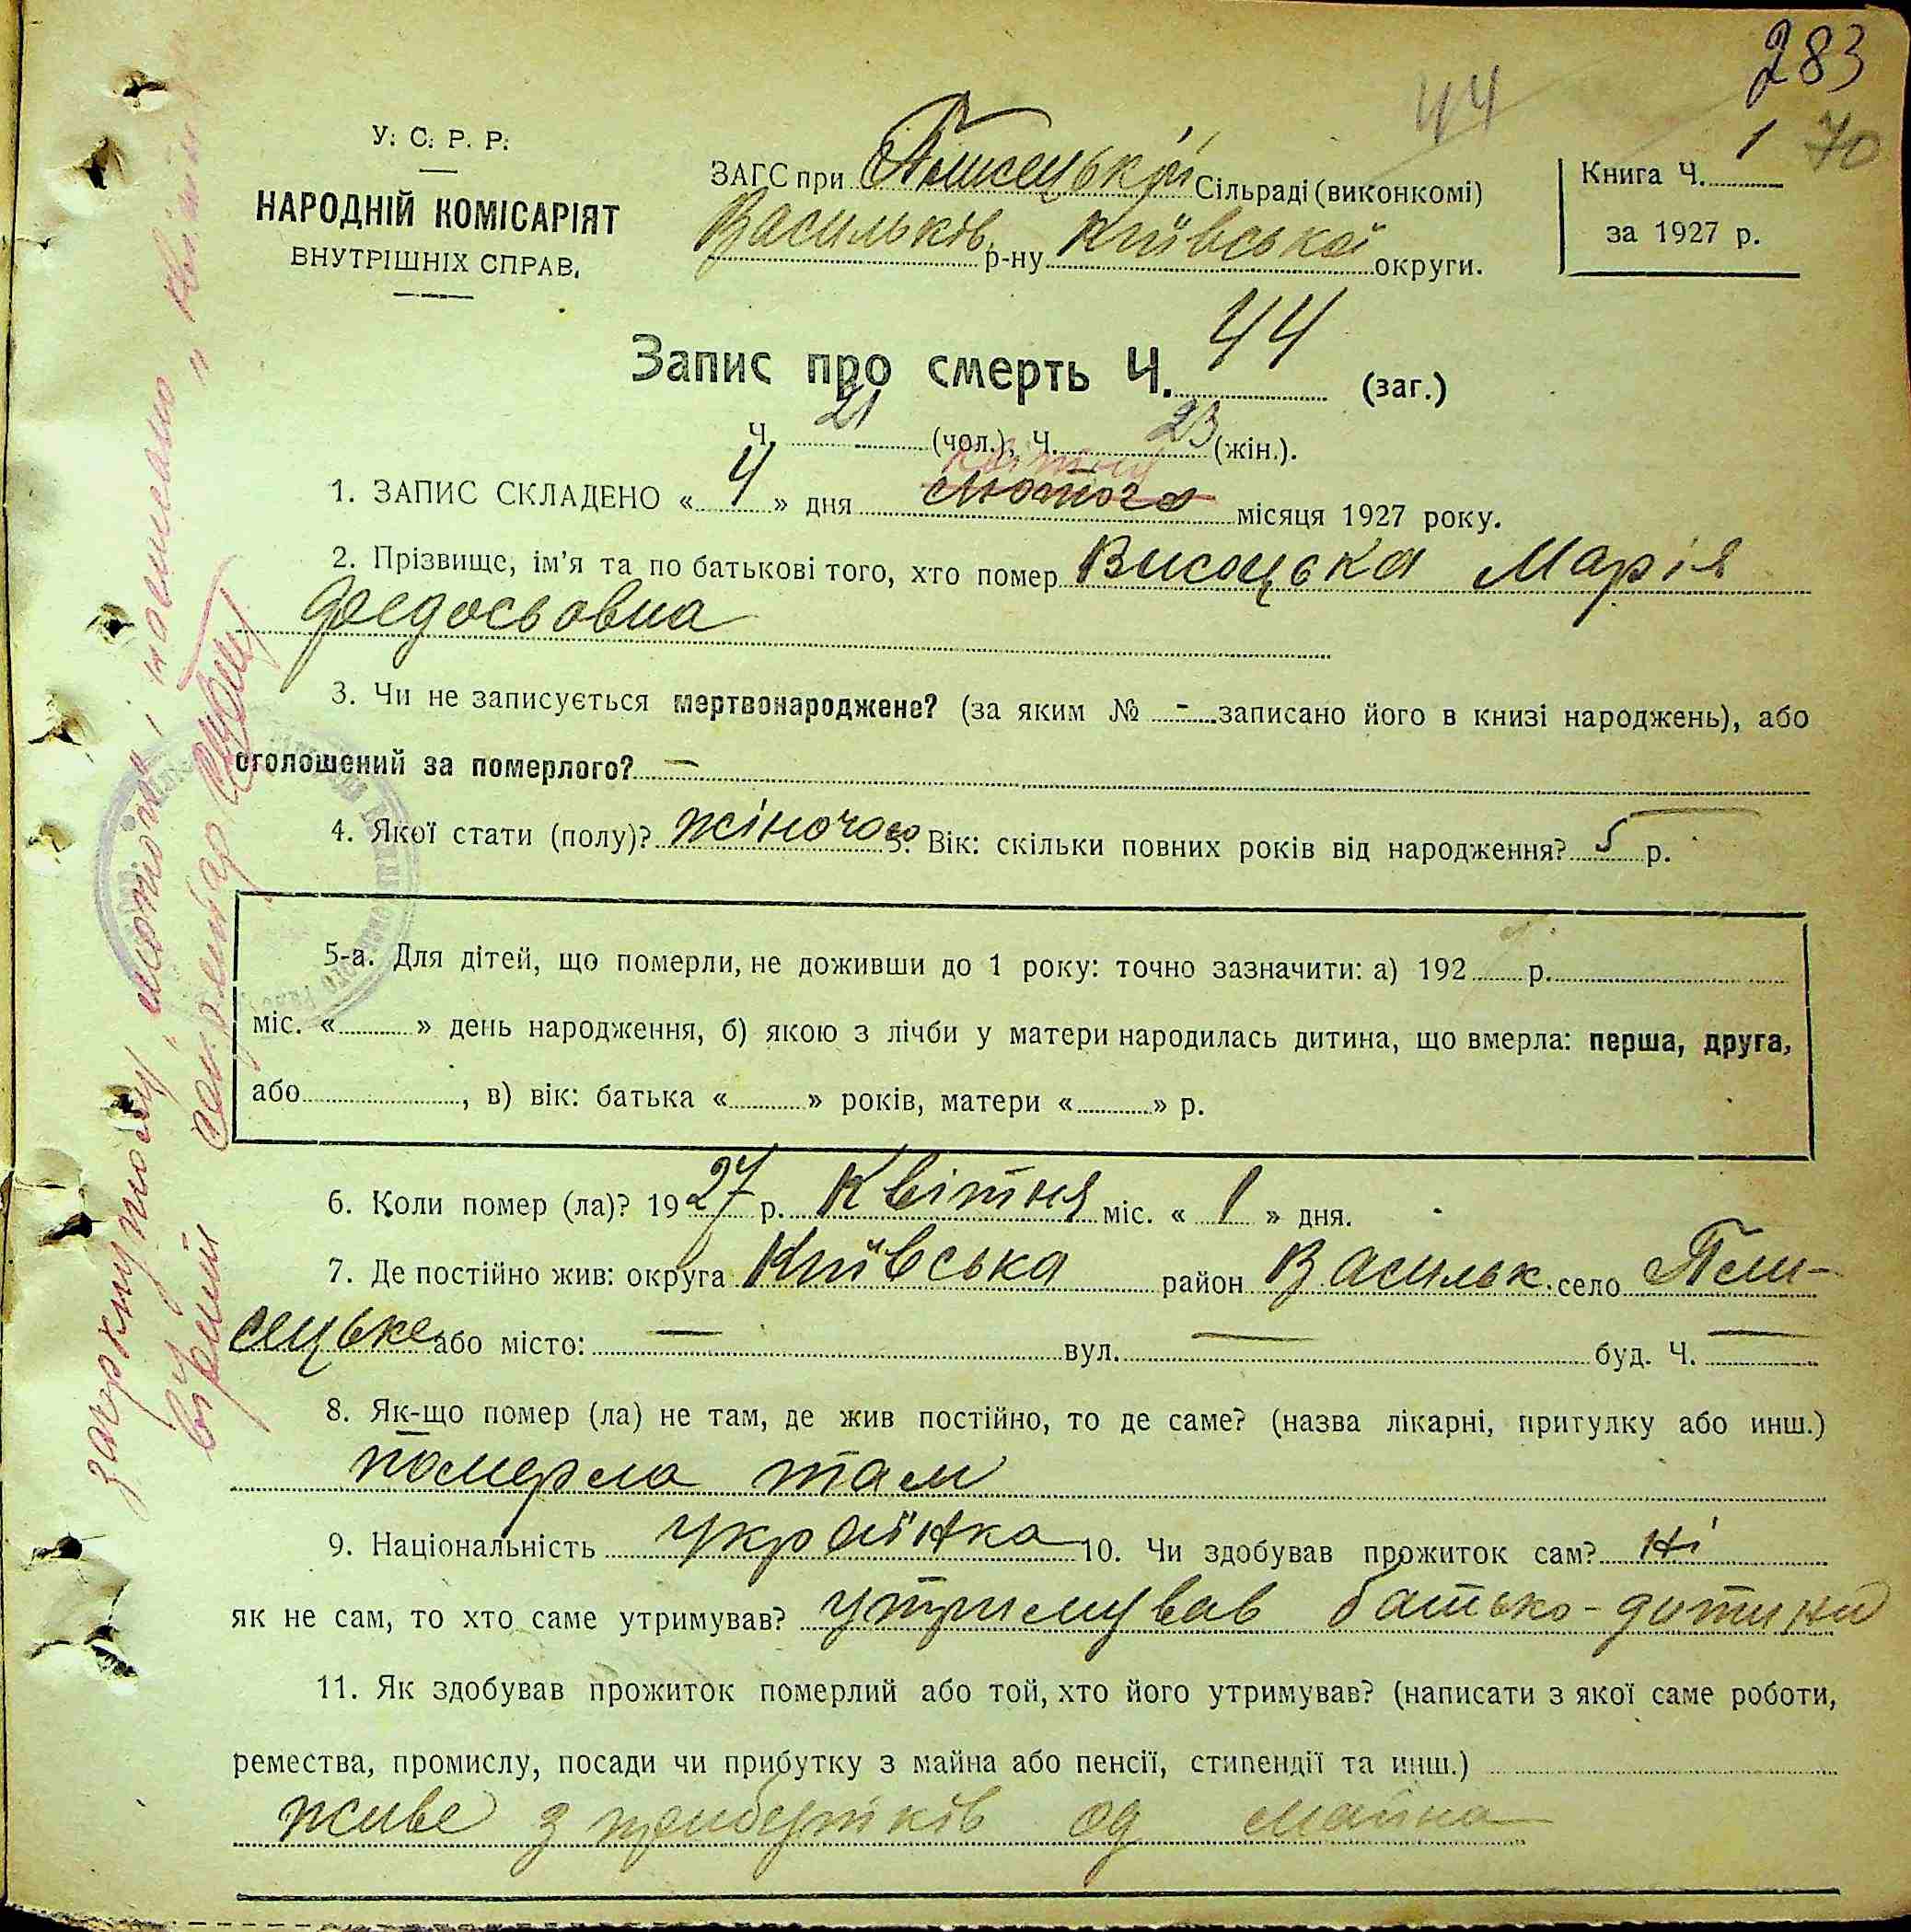 283
44
70
У. С. Р. Р.
НАРОДНІЙ КОМІСАРІЯТ
ВНУТРІШНІХ СПРАВ.
ЗАГС при Плисецькій Сільраді (виконкомі)
Васильків. р-ну Київської округи.
Книга Ч. 1
за 1927 р.
Запис про смерть Ч. 44 (заг.)
Ч. 21 (чол.), Ч. 23 (жін.).
квітня
1. ЗАПИС СКЛАДЕНО « 4 » дня лютого місяця 1927 року.
2. Прізвище, ім'я та по батькові того, хто помер Висоцька Марія
Федосьовна
3. Чи не записується мертвонароджене? (за яким № - записано його в книзі народжень), або
оголошений за померлого? —
4. Якої стати (полу)? жіночого 5. Вік: скільки повних років від народження? 5 р.
5-а. Для дітей, що померли, не доживши до 1 року: точно зазначити: а) 192 р.
міс. « » день народження, б) якою з лічби у матери народилась дитина, що вмерла: перша, друга,
або , в) вік: батька « » років, матери « » р.
6. Коли помер (ла)? 1927 р. Квітня міс. « 1 » дня.
7. Де постійно жив: округа Київська район Васильк. село Пли-
сецьке або місто: — вул. — буд. Ч. —
8. Як-що помер (ла) не там, де жив постійно, то де саме? (назва лікарні, притулку або инш.)
померла там
9. Національність українка 10. Чи здобував прожиток сам? ні
як не сам, то хто саме утримував? утримував батько - дитини
11. Як здобував прожиток померлий або той, хто його утримував? (написати з якої саме роботи,
ремества, промислу, посади чи прибутку з майна або пенсії, стипендії та инш.)
живе з прибутків од майна
закркнутому „лютого", написано „квітня"
вірити Секретар